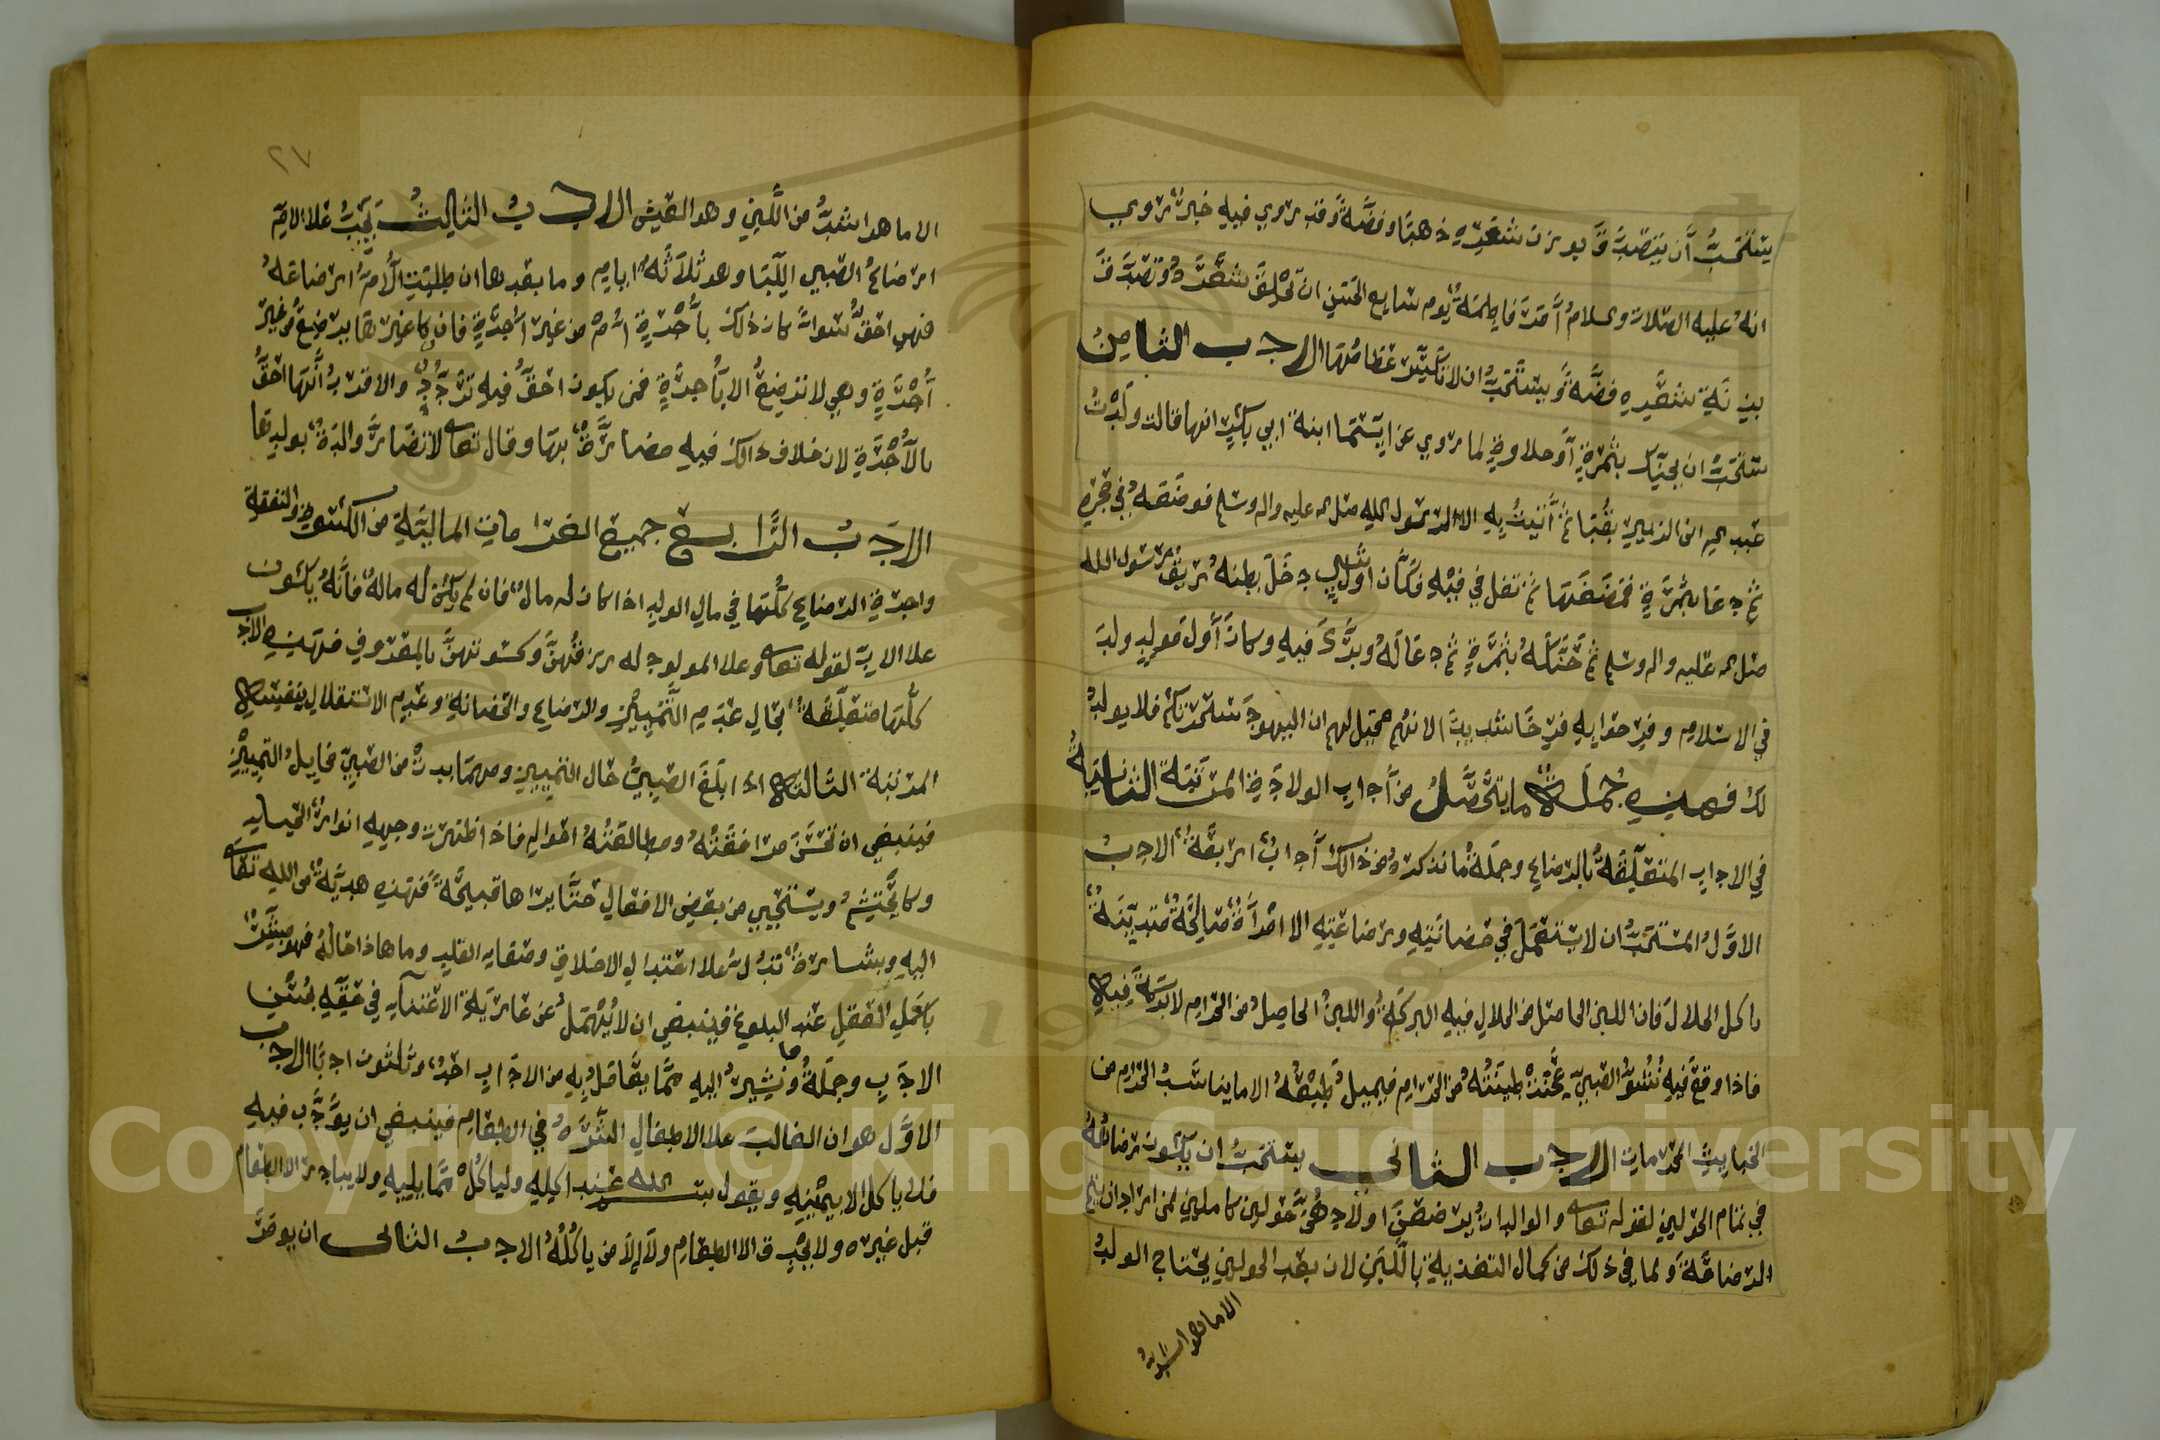 يستحب أن يتصدق بوزن شعره ذهبا وفضة وقد روي فيه خبر روي
انه عليه الصلاة والسلام أمر فاطمة يوم سابع الحسن ان تحلق شعره وتصدق
بزنة شعره فضة ويستحب ان لا تكسر عظامها الادب الثامن
يستحب ان يحنك بتمرة أو حلاوة لما روي عن اسما ابنة ابي بكر انها قالت ولدت
عبد الله ابن الزبير بقبا ثم أتيت به الا رسول الله صلى الله عليه واله وسلم فوضعه في حجره
ثم دعا بتمرة فمضغها ثم تفل في فيه فكان اول شي دخل بطنه ريق رسول الله
صلى الله عليه واله وسلم ثم حنكه بتمرة ثم دعا له وبرك فيه وكان أول مولود ولد
في الاسلام وفرحوا به فرحا شديدا لانهم قيل لهم ان اليهود سحرتكم فلا يولد
لكم فهذه جملة ما يتحصل من أداب الولادة المرتبة الثانية
في الاداب المتعلقة بالرضاع وجملة ما نذكره من ذالك أداب اربعة الادب
الاول المستحب ان لا يستعمل في حضانته ورضاعته الا امرأة صالحة متدينة
تاكل الحلال فان اللبن الحاصل من الحلال فيه البركة واللبن الحاصل من الحرام لا بركة فيه
فاذا وقع فيه نشو الصبي عجنت طينته من الحرام فيميل طبعه الا ما يناسب الحرام من
الخبايث المحرمات الادب الثاني يستحب ان يكون رضاعه
في تمام الحولين لقوله تعالى والوالدات يرضعن اولادهن حولين كاملين لمن اراد ان يتم
الرضاعة ولما في ذلك من كمال التغذية باللبن لان بعد الحولين يحتاج الولد
الا ما هو اشد
٢٧
الا ما هو اشد من اللبن وهو العيش الادب الثالث يجب علا الام
ارضاع الصبي اللبا وهو ثلاثة ايام وما بعدها ان طلبت الأم ارضاعه
فهي احق سوا كان ذلك بأجرة ام من غير أجرة فان كان غيرها يرضع من غير
أجرة وهي لا ترضع الا بأجرة فمن يكون احق فيه تردد والاقرب أنها احق
بالأجرة لان خلاف ذالك فيه مضارة بها وقال تعالى لا تضار والدة بولدها
الادب الرابع جميع الغرامات المالية من الكسوة والنفقة
واجرة الرضاع كلها في مال الولد اذا كان له مال فان لم يكن له مال فأنه يكون
علا الاب لقوله تعالى وعلا المولود له رزقهن وكسوتهن بالمعروف فهذه الاداب
كلها متعلقة بحال عدم التمييز والرضاع والحضانة وعدم الاستقلال بنفسه
المرتبة الثالثة اذا بلغ الصبي حال التمييز ومهما بدت من الصبي مخايل التمييز
فينبغي ان تحسن مراقبته ومطالعته احواله فاذا ظهرت وجهه انوار الحيا
وكان يحتشم ويستحيي من بعض الافعال حتا يراها قبيحة فهذه هدية من الله تعالى
اليه وبشارة تدل علا اعتدال الاخلاق وصفا القلب وما هاذا حاله فهو مبشر
بكمال العقل عند البلوغ فينبغي ان لا يهمل عن عارية الاعتناء في حقه بحسن
الادب وجملة ما نشير اليه مما يتعامل به من الاداب احد وثلثون ادبا الادب
الاول هو ان الغالب علا الاطفال الشره في الطعام فينبغي ان يؤدب فيه
فلا ياكل الا بيمينه ويقول بسم الله عند اكله ولياكل مما يليه ولا يبادر الا الطعام
قبل غيره ولا يحدق الا الطعام ولا إلا من ياكله الادب الثاني ان يعود